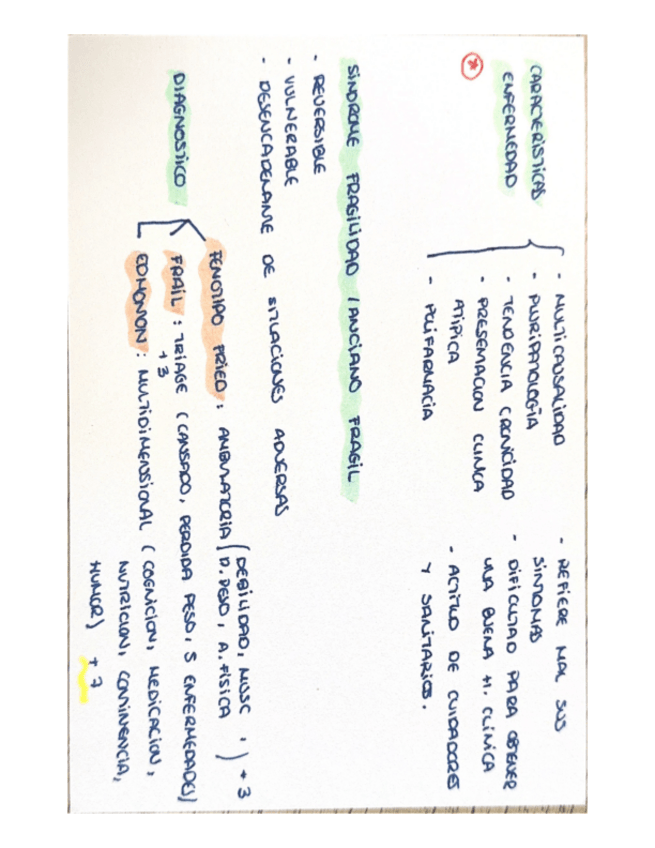 CARACTERISTICAS
ENFERMEDAD
- MULTICAUSALIDAD
- PLURIPATOLOGÍA
- TENDENCIA CRONICIDAD
- PRESENTACION CLINICA
ATIPICA
- POLIFARMACIA
- REFIERE MAL SUS
SINTOMAS
- DIFICULTAD PARA OBTENER
UNA BUENA H. CLINICA
- ACTITUD DE CUIDADORES
Y SANITARIOS.
SINDROME FRAGILIDAD / ANCIANO FRAGIL
- REVERSIBLE
- VULNERABLE
- DESENCADENANTE DE SITUACIONES ADVERSAS
DIAGNOSTICO
FENOTIPO FRIED : AMBULATORIA ( DEBILIDAD, MUSC.
P. PESO, A. FISICA ) + 3
FRAIL : TRIAGE ( CANSADO, PERDIDA PESO, 5 ENFERMEDADES)
+ 3
EDMONTON : MULTIDIMENSIONAL ( COGNICION, MEDICACION,
NUTRICION, CONTINENCIA,
HUMOR) + 7